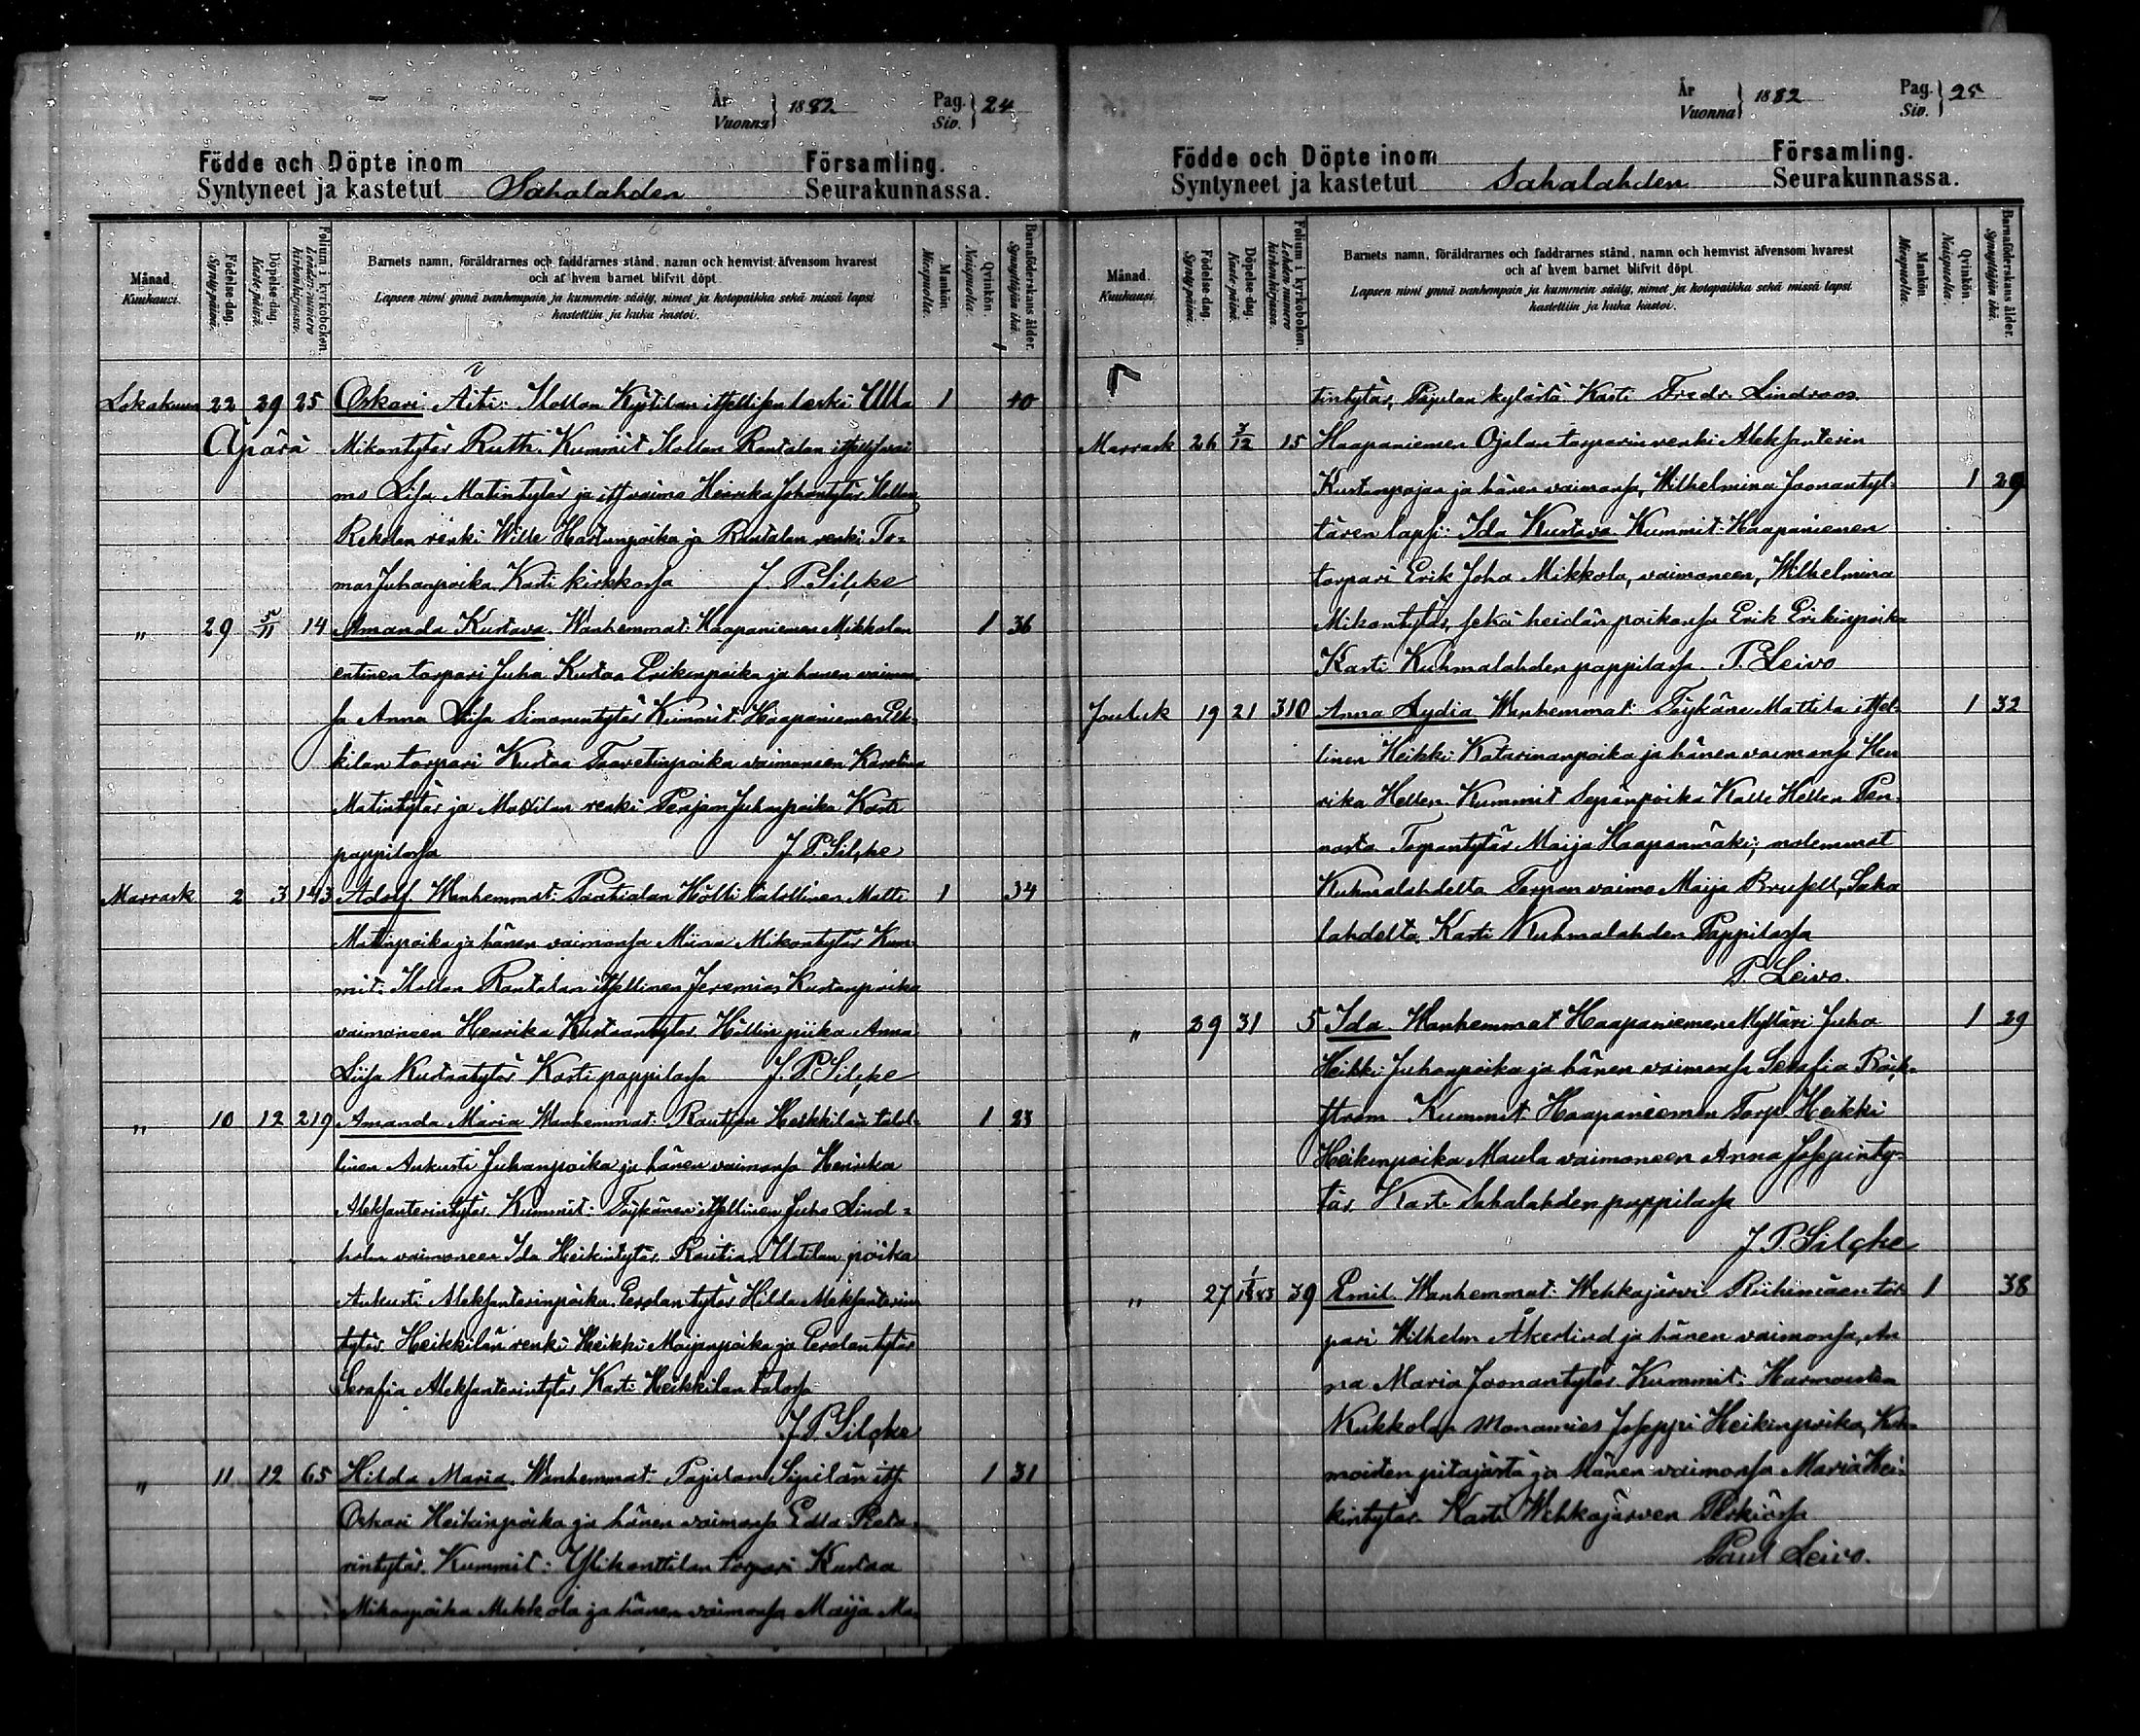 År
Vuonna } 1882
Pag.
Siv. } 24
Födde och Döpte inom
Församling.
Syntyneet ja kastetut Sahalahden Seurakunnassa.
Månad.
Kuukausi.
Födelse-dag.
Synty-päivä.
Döpelse-dag.
Kaste-päivä.
Folium i kyrkoboken.
Lehden numero kirkonkirjassa.
Barnets namn, föräldrarnes och faddrarnes stånd, namn och hemvist äfvensom hvarest
och af hvem barnet blifvit döpt.
Lapsen nimi ynnä vanhempain ja kummein sääty, nimet ja kotopaikka sekä missä lapsi
kastettiin ja kuka kastoi.
Mankön.
Miespuolia.
Qvinkön.
Naispuolia.
Barnaföderskans ålder.
Synnyttäjän ikä.
Lokakuun 22 29 25 Oskari Äiti: Isollon Kystilan itsellisen leski Ulla 1 40
Äpärä Mikontytär Ruth. Kummit Rantalan
mo Lisa Matintytär ja its vaimo Henrika Johantytär
Rekolan renki Wille Kustanpoika ja Rantalan renki To-
mas Juhanpoika Kasti kirkkossa J. P. Silçke
" 29 5/11 14 Amanda Kustava. Wanhemmat: Haapaniemen Mikkolan 1 36
entinen torpari Juha Kustaa Erikinpoika ja hänen vaimon-
sa Anna Liisa Simonintytär Kummit: Haapaniemen Pek-
kilan torpari Kustaa Taavetinpoika vaimoneen Karolina
Matintytär ja Mattilan renki Penjam Juhanpoika Kasti
pappilassa J. P. Silçke
Marrask 2 3 143 Adolf Wanhemmat: Paahialan Hölli talollinen Matti 1 34
Matinpoika ja hänen vaimonsa Miina Mikontytär Kum-
mit: Rantalan itsellinen Jeremias Kustanpoika
vaimoneen Henrika Kustaantytär Höllin piika Anna
Liisa Kustaatytär Kasti pappilassa J. P. Silçke
" 10 12 219 Amanda Maria Wanhemmat: Rautian Heikkilän talol- 1 23
linen Aukusti Juhanpoika ja hänen vaimonsa Henrika
Aleksanterintytär Kummit: Töykänä itsellinen Juho Lind-
holm vaimoneen Ida Heikintytär Rautian Uotilan poika
Aukusti Aleksanterinpoika Perolan tytär Hilda Aleksanterin
tytär Heikkilän renki Heikki Maijanpoika ja Perolan tytär
Serafia Aleksanterintytär Kasti Heikkilan talossa
J. P. Silçke
" 11 12 65 Hilda Maria. Wanhemmat: Pajulan Sipilän its. 1 31
Oskari Heikinpoika ja hänen vaimonsa Edla
rintytär. Kummit: Ylikonttilan torpari Kustaa
Mikonpoika Mikkola ja hänen vaimonsa Maija Ma-
År
Vuonna } 1882
Pag.
Siv. } 25
Födde och Döpte inom
Församling.
Syntyneet ja kastetut Sahalahden Seurakunnassa.
Månad.
Kuukausi.
Födelse-dag.
Synty-päivä.
Döpelse-dag.
Kaste-päivä.
Folium i kyrkoboken.
Lehden numero kirkonkirjassa.
Barnets namn, föräldrarnes och faddrarnes stånd, namn och hemvist äfvensom hvarest
och af hvem barnet blifvit döpt.
Lapsen nimi ynnä vanhempain ja kummein sääty, nimet ja kotopaikka sekä missä lapsi
kastettiin ja kuka kastoi.
Mankön.
Miespuolia.
Qvinkön.
Naispuolia.
Barnaföderskans ålder.
Synnyttäjän ikä.
tintytär, Pajulan kylästä Kasti Fredr. Lindroos
Marrask 26 3/12 15 Haapaniemen Ojalan torparin renki Aleksanterin
Kustanpojan ja hänen vaimonsa, Wilhelmina Joonantyt- 1 29
tären lapsi: Ida Kustava Kummit: Haapaniemen
torpari Erik Joha Mikkola, vaimoneen, Wilhelmina
Mikontytär, sekä heidän poikansa Erik Erikinpoika
Kasti Kuhmalahden pappilassa. P. Leivo
Jouluk 19 21 310 Anna Lydia Wanhemmat: Töykänä Mattila itsel- 1 32
linen Heikki Katarinanpoika ja hänen vaimonsa Hen
rika Hellen. Kummit Sepänpoika Kalle Hellen Pen-
nosta Torpantytär Maija Haapanmäki; molemmat
Kuhmalahdelta Torpan vaimo Maija Saha
lahdelta. Kasti Kuhmalahden Pappilassa
P. Leivo.
" 29 31 5 Ida Wanhemmat Haapaniemen Mylläri Juha 1 29
Heikki Juhanpoika ja hänen vaimonsa Serafia Bäck-
ström Kummit Haapaniemen Torp. Heikki
Heikinpoika Maula vaimoneen Anna Josepinty-
tär Kasti Sahalahden pappilassa
J. P. Silçke
" 27 1/1 83 39 Emil Wanhemmat: Wehkajärvi Riihimäen tor- 1 38
pari Wilhelm Åkerlind ja hänen vaimonsa, An
na Maria Joonantytär. Kummit: Harmoisten
Kukkolan Monamies Joseppi Heikinpoika, Kuh-
moisten pitäjästä ja hänen vaimonsa Maria Hei-
kintytär. Kasti Wehkajärven Perkiössä
Paul Leivo.